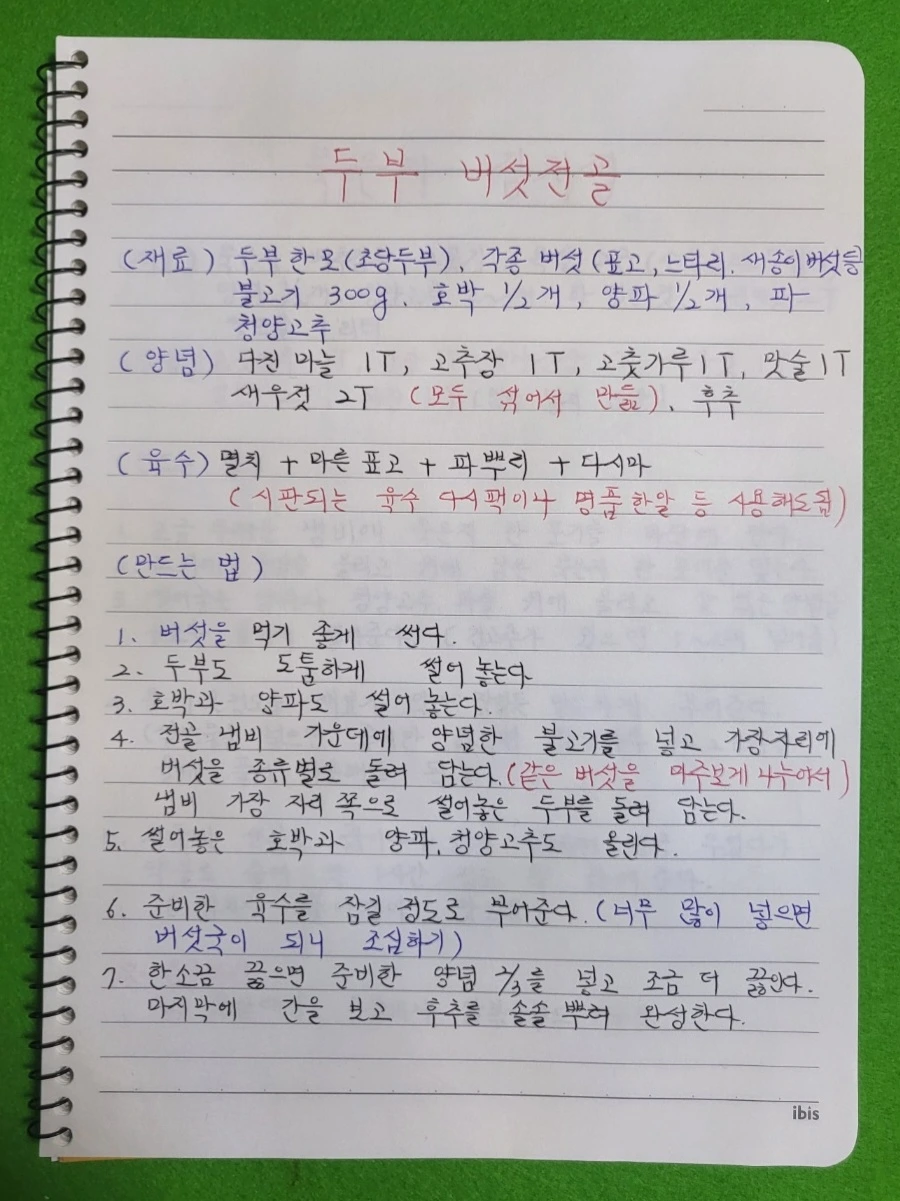 두부 버섯전골
(재료) 두부한모(초당두부), 각종 버섯(표고, 느타리. 새송이버섯등
불고기 300g, 호박 1/2개, 양파 1/2개, 파
청양고추
(양념) 다진마늘 1T, 고추장 1T, 고춧가루1T, 맛술1T
새우젓 2T (모두 섞어서 만듦), 후추
(육수) 멸치 + 마른표고 + 파뿌리 + 다시마
(시판되는 육수 다시팩이나 명품한알 등 사용해도됨)
(만드는 법)
1. 버섯을 먹기 좋게 썬다.
2. 두부도 도톰하게 썰어 놓는다
3. 호박과 양파도 썰어 놓는다.
4. 전골 냄비 가운데에 양념한 불고기를 넣고 가장자리에
버섯을 종류별로 돌려 담는다.(같은 버섯을 마주보게 나누어서)
냄비 가장 자리 쪽으로 썰어놓은 두부를 돌려 담는다.
5. 썰어놓은 호박과 양파, 청양고추도 올린다.
6. 준비한 육수를 잠길 정도로 부어준다.(너무 많이 넣으면
버섯국이 되니 조심하기)
7. 한소끔 끓으면 준비한 양념 2/3를 넣고 조금 더 끓인다.
마지막에 간을 보고 후추를 솔솔 뿌려 완성한다.
ibis